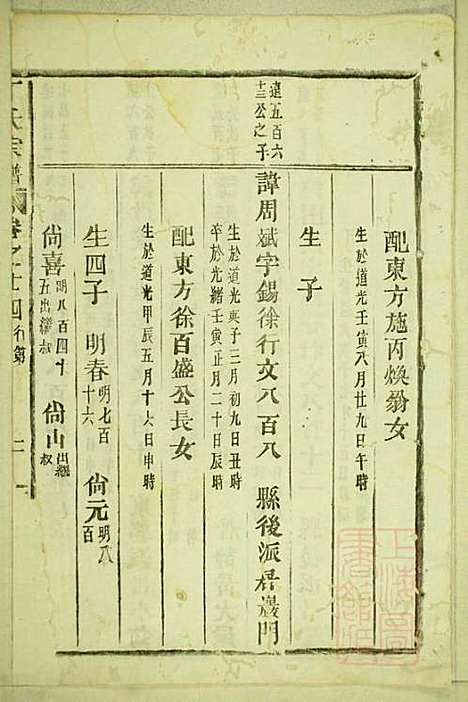 配東方施丙煥翁女
生於道光壬寅八月廿九日午時
生 子
遠五百六十三公之子
諱周斌字錫徐行文八百八 縣後派 巖門
生於道光庚子三月初九日丑時
卒於光緒壬寅正月二十日辰時
配東方徐百盛公長女
生於道光甲辰五月十六日申時
生四子 明春明七百十六 尙元明八百
尙喜明八百四十五出繼叔 尙山出繼叔
氏宗譜 卷之十四行第 二